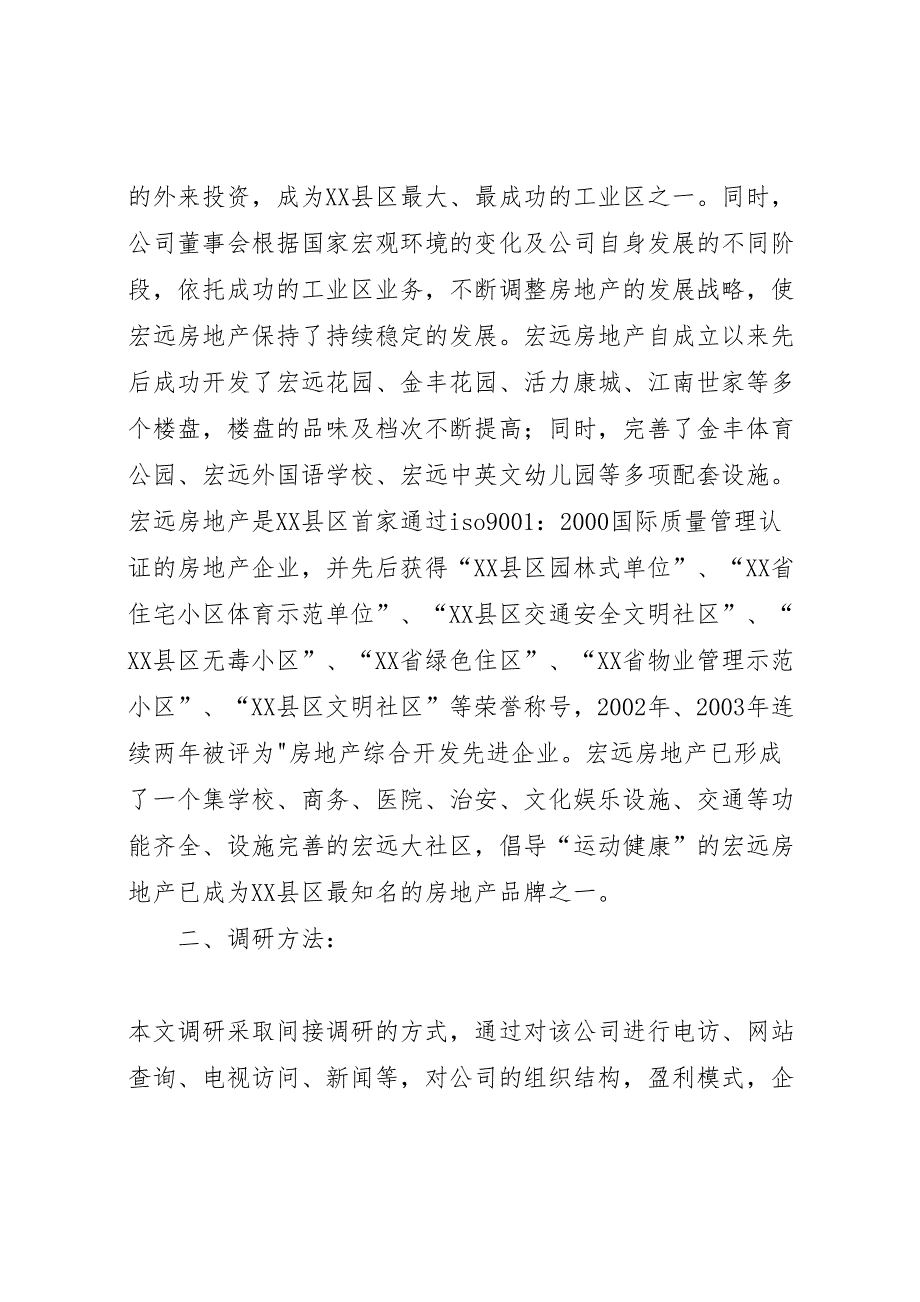 的外来投资，成为XX县区最大、最成功的工业区之一。同时，
公司董事会根据国家宏观环境的变化及公司自身发展的不同阶
段，依托成功的工业区业务，不断调整房地产的发展战略，使
宏远房地产保持了持续稳定的发展。宏远房地产自成立以来先
后成功开发了宏远花园、金丰花园、活力康城、江南世家等多
个楼盘，楼盘的品味及档次不断提高；同时，完善了金丰体育
公园、宏远外国语学校、宏远中英文幼儿园等多项配套设施。
宏远房地产是XX县区首家通过iso9001：2000国际质量管理认
证的房地产企业，并先后获得“XX县区园林式单位”、“XX省
住宅小区体育示范单位”、“XX县区交通安全文明社区”、“
XX县区无毒小区”、“XX省绿色住区”、“XX省物业管理示范
小区”、“XX县区文明社区”等荣誉称号，2002年、2003年连
续两年被评为"房地产综合开发先进企业。宏远房地产已形成
了一个集学校、商务、医院、治安、文化娱乐设施、交通等功
能齐全、设施完善的宏远大社区，倡导“运动健康”的宏远房
地产已成为XX县区最知名的房地产品牌之一。
二、调研方法：
本文调研采取间接调研的方式，通过对该公司进行电访、网站
查询、电视访问、新闻等，对公司的组织结构，盈利模式，企